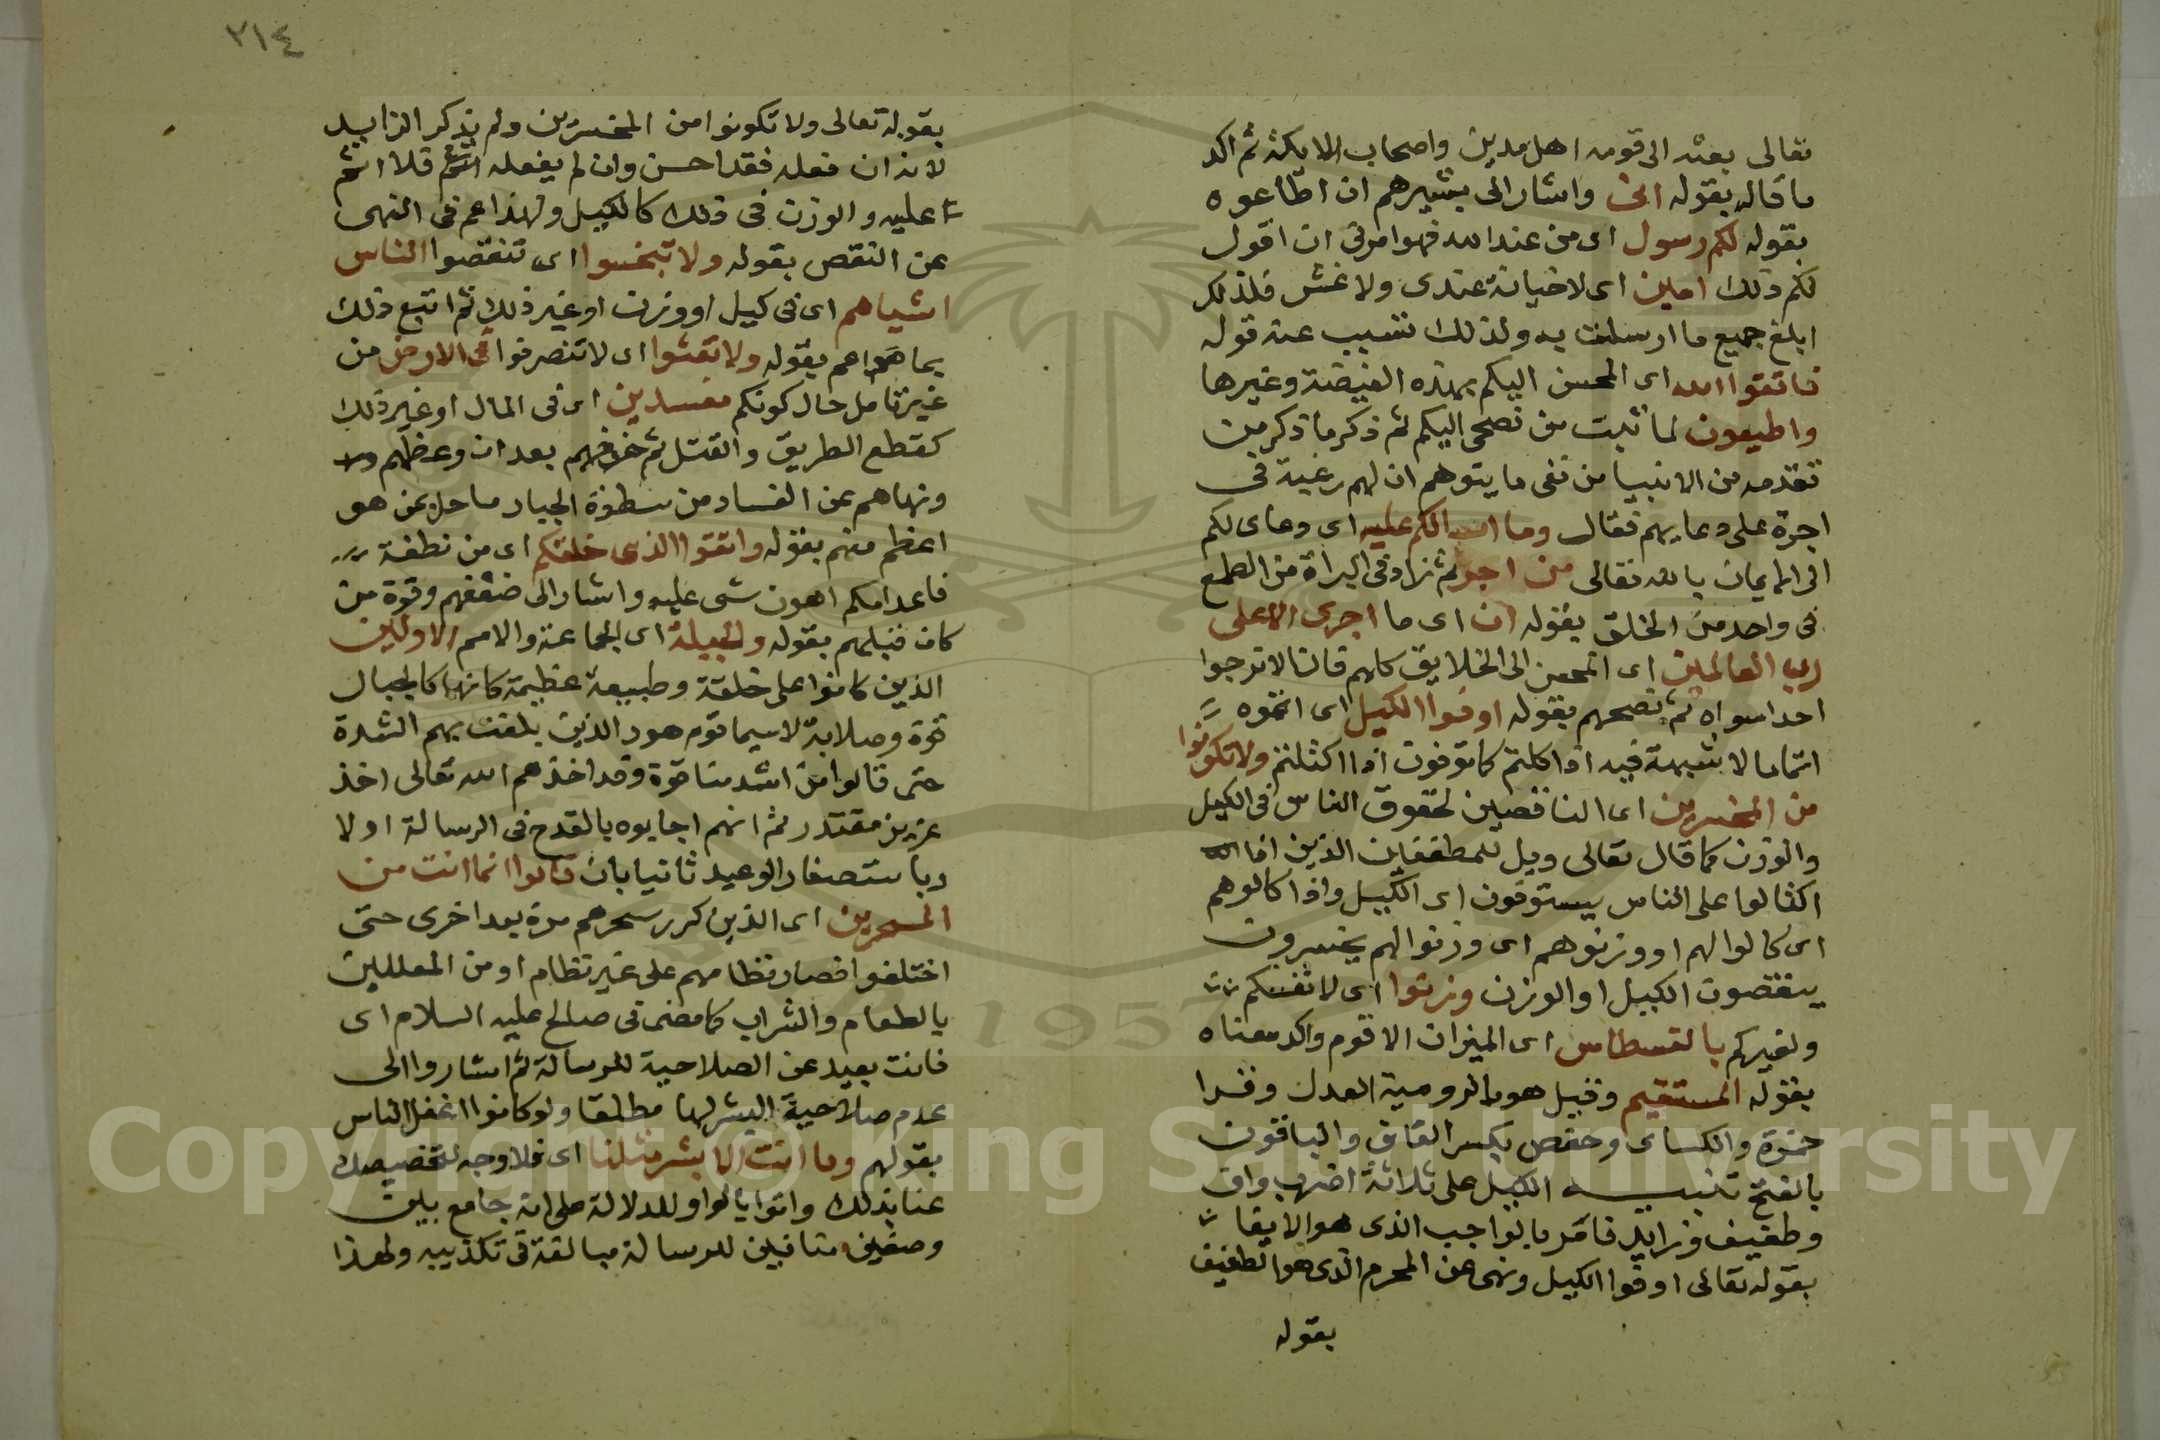 تعالى بعثه الى قومه اهل مدين واصحاب الايكة ثم اكد
ما قاله بقوله انى واشار الى بشيرهم ان اطاعوه
بقوله لكم رسول اى من عند الله فهو امرنى ان اقول
لكم ذلك امين اى لا خيانة عندى ولا غش فلذلك
ابلغ جميع ما ارسلت به ولذلك تسبب عنه قوله
فاتقوا الله اى المحسن اليكم بهذه الغيضة وغيرها
واطيعون لما ثبت من نصحى اليكم ثم ذكر ما ذكر من
تقدمه من الانبيا من نفى ما يتوهم ان لهم رغبة فى
اجرة على دعايهم فقال وما اسالكم عليه اى دعاى لكم
الى الايمان بالله تعالى من اجر ثم زاد فى البراة من الطمع
فى واحد من الخلق بقوله ان اى ما اجرى الا على
رب العالمين اى المحسن الى الخلايق كلهم فانا لا نرجوا
احدا سواه ثم نصحهم بقوله اوفوا الكيل اى اتموه
اتماما لا شبهة فيه اذا كلتم كما توفون اذا اكتلتم ولا تكونوا
من المخسرين اى الناقصين لحقوق الناس فى الكيل
والوزن كما قال تعالى ويل للمطففين الذين اذا
اكتالوا على الناس يستوفون اى الكيل واذا كالوهم
اى كالوا لهم او وزنوهم اى وزنوا لهم يخسرون
ينقصون الكيل او الوزن وزنوا اى لانفسكم
ولغيركم بالقسطاس اى الميزان الاقوم واكد معناه
بقوله المستقيم وقيل هو بالرومية العدل وقرا
حمزة والكساى وحفص بكسر القاف والباقون
بالفتح تنبيه الكيل على ثلاثة اضرب واف
وطفيف وزايد فامر بالواجب الذى هو الايفا
بقوله تعالى اوفوا الكيل ونهى عن المحرم الذى هو التطفيف
بقوله
٢١٤
بقوله تعالى ولا تكونوا من المخسرين ولم يذكر الزايد
لانه ان فعله فقد احسن وان لم يفعله فلا اثم
عليه والوزن فى ذلك كالكيل ولهذا عم فى النهى
عن النقص بقوله ولا تبخسوا اى تنقصوا الناس
اشياهم اى فى كيل او وزن او غير ذلك ثم اتبع ذلك
بما هو اعم بقوله ولا تعثوا اى لا تتصرفوا فى الارض من
غير تامل حال كونكم مفسدين اى فى المال او غير ذلك
كقطع الطريق والقتل ثم خوفهم بعد ان وعظهم
ونهاهم عن الفساد من سطوة الجبار ما حل بمن هو
اعظم منهم بقوله واتقوا الذى خلقكم اى من نطفة
فاعدامكم اهون شى عليه واشار الى ضعفهم وقوة من
كان قبلهم بقوله والجبلة اى الجماعة والامم الاولين
الذين كانوا على خلقة وطبيعة عظيمة كانها كالجبال
قوة وصلابة لا سيما قوم هود الذين بلغت بهم الشدة
حتى قالوا من اشد منا قوة وقد اخذهم الله تعالى اخذ
عزيز مقتدر ثم انهم اجابوه بالقدح فى الرسالة اولا
وباستصغار الوعيد ثانيا بان قالوا انما انت من
المسحرين اى الذين كرر سحرهم مرة بعد اخرى حتى
اختلفوا فصار نظامهم على غير نظام او من المعللين
بالطعام والشراب كما مضى فى صالح عليه السلام اى
فانت بعيد عن الصلاحية للرسالة ثم اشاروا الى
عدم صلاحية البشر لها مطلقا ولو كانوا اعقل الناس
بقولهم وما انت الا بشر مثلنا اى فلا وجه لتخصيصك
عنا بذلك واتوا بالواو للدلالة على انه جامع بين
وصفين متنافيين للرسالة مبالغة فى تكذيبه ولهذا
1957
Copyright © King Saud University